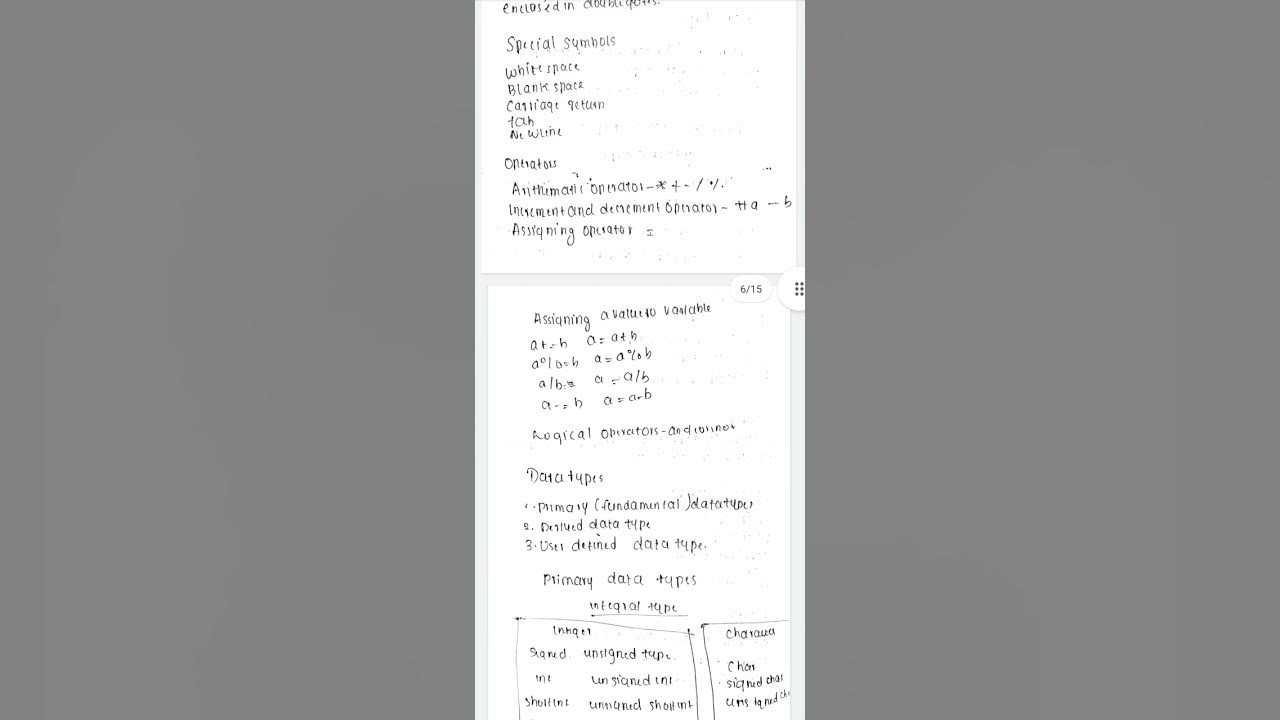 enclosed in double quotes.
Special symbols
White space
Blank space
Carriage return
tab
Newline
Operators
Arithmatic operator - * + - / %
Increment and decrement operator - ++a --b
Assigning operator =
6/15
Assigning a value to variable
a+=b a=a+b
a%=b a=a%b
a/b= a=a/b
a-=b a=a-b
Logical operators - and or not
Data types
1. Primary (fundamental) datatypes
2. Derived data type
3. User defined data type.
Primary data types
integral type
Integer Character
signed unsigned type
int unsigned int char
short int unsigned short int signed char
unsigned cha